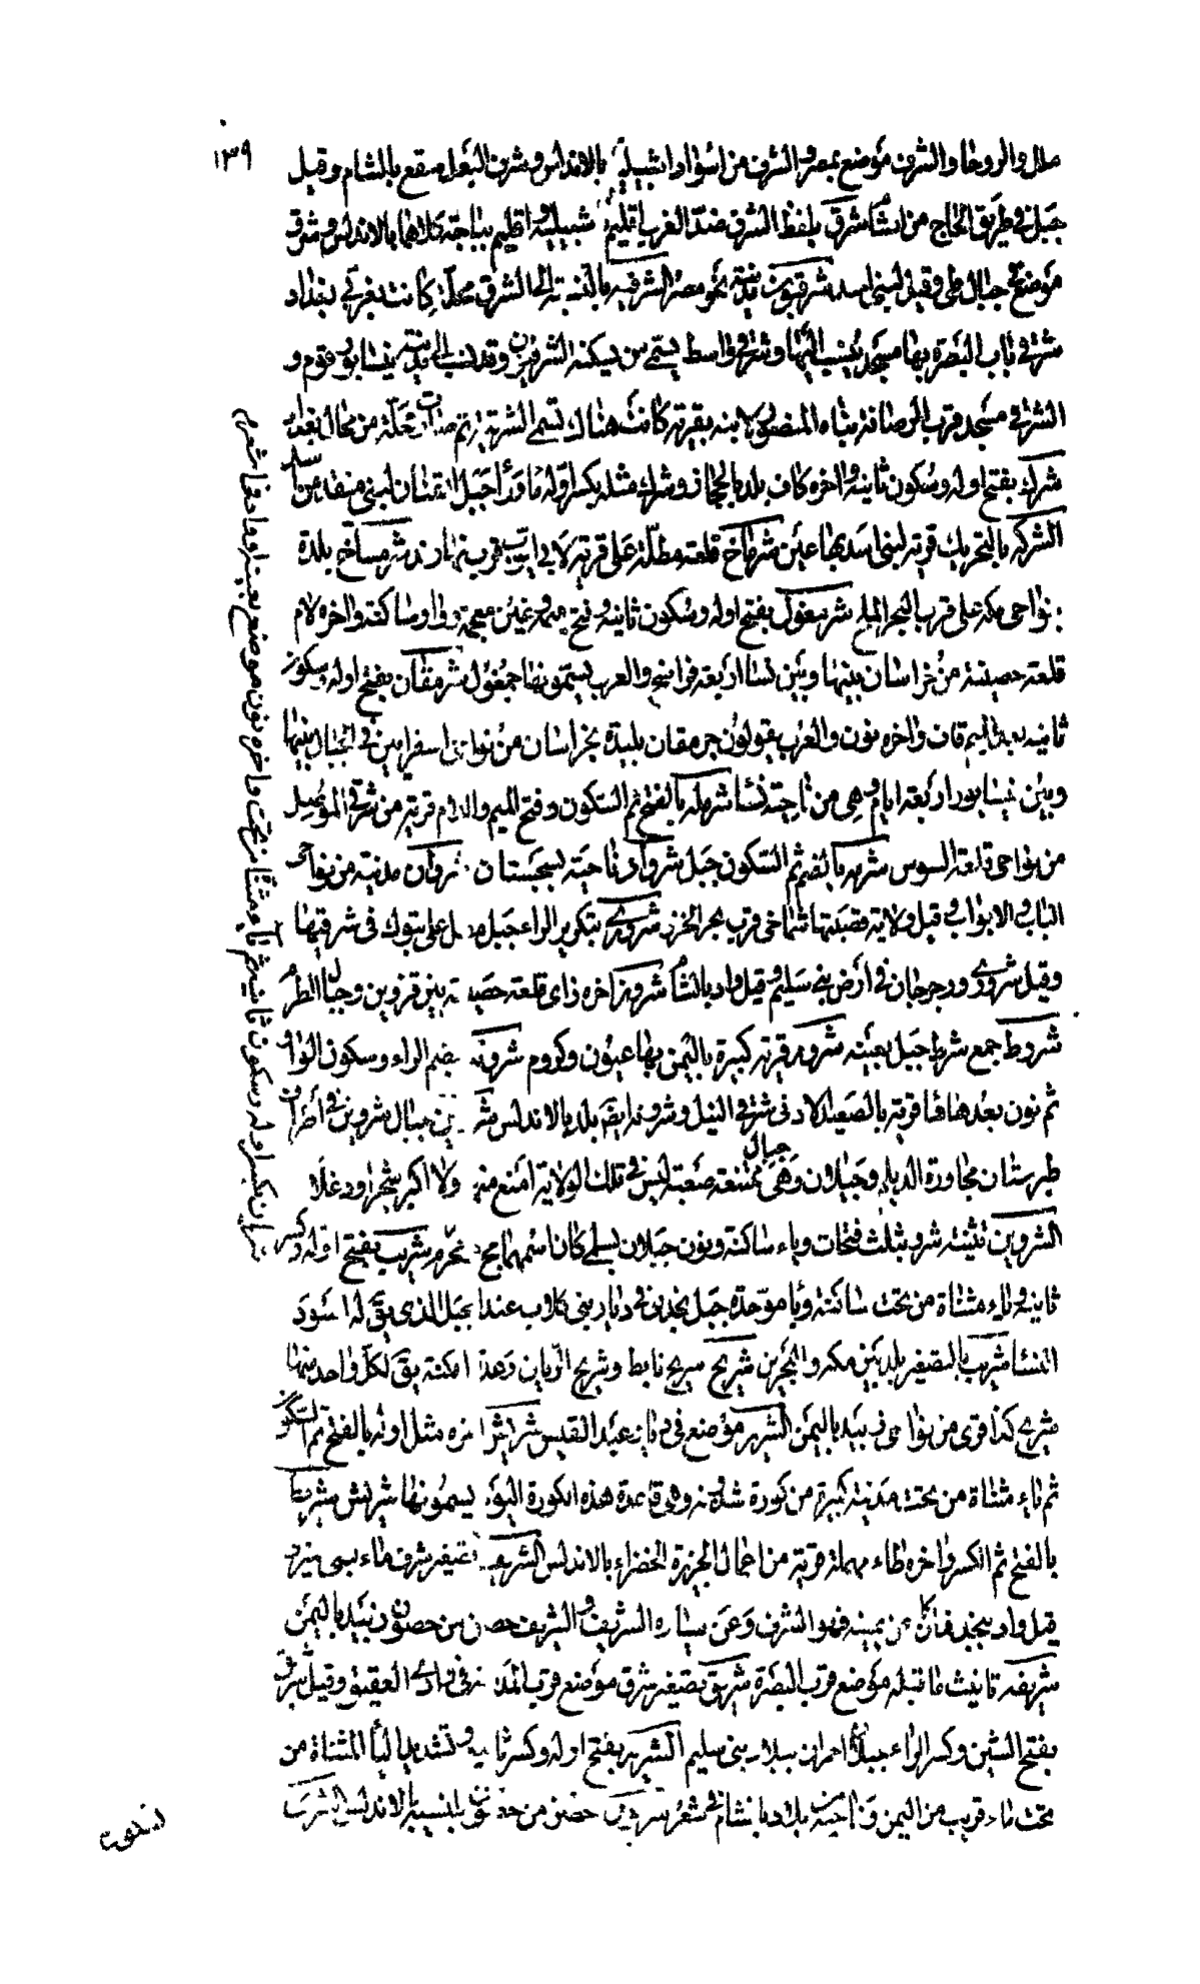 ١٣٩
ملل والروحا والشرف موضع بمصر والشرف من اسواد اشبيلية بالاندلس وشرف البعل صقع بالشام وقيل
جبل في طريق الحاج من الشام شرق بلفظ الشرق ضد الغرب اقليم اشبيلية واقليم بباجة كلاهما بالاندلس وشرق
موضع في جبال طي وقيل لبني اسد شرقيون مدينة نحو مصر الشرقيه بالنسبة الى الشرق محلة كانت بغربي بغداد
شرقي باب البصرة بها مسجد ينسب اليها وشرقي واسط يسمى من يسكنه الشرقيين وقد نسب الى مدينة نيسابور قوم و
الشرقي مسجد قرب الرصافة بناه المنصور لابنه بقرية كانت هناك تسمى الشرقية ثم صارت محلة من محال بغداد
شرك بفتح اوله وسكون ثانيه واخره كاف بلد بالحجاز وشرك مثله بكسر اوله ماء وراء جبل القنان لبني منقذ من اسد
الشركة بالتحريك قرية لبني اسد بها عين شرماخ قلعة مطلة على قرية لابي ايوب قرب نهاوند شرمساخ بلدة
بنواحي مكه على قرب البحر الملح شرمغول بفتح اوله وسكون ثانيه وفتح ميم وغين معجمة وواو ساكنة واخره لام
قلعة حصينة من خراسان بينها وبين نسا اربعة فراسخ والعرب يسمونها جمغول شرمقان بفتح اوله وسكون
ثانيه بعد الميم قاف واخره نون والعرب يقولون جرمقان بليدة بخراسان من نواحي اسفرايين في الجبال بينها
وبين نيسابور اربعة ايام وهي من ناحية نسا شرمله بالفتح ثم السكون وفتح الميم واللام قرية من شرقي الموصل
من نواحي قلعة السوس شرمه بالضم ثم السكون جبل شرواذ ناحية بسجستان شروان مدينة من نواحي
الباب والابواب وقيل ولاية قصبتها شماخي قرب بحر الخزر شرورى بتكرير الراء جبل مطل على تبوك في شرقيها
وقيل شرورى ورجرجان في ارض بني سليم وقيل واد بالشام شروز اخره زاي قلعة حصينة بين قزوين وجبال الطرم
شروط جمع شرط جبل بعينه شروم قرية كبيرة باليمن بها عيون وكروم شرونه بضم الراء وسكون الواو
ثم نون بعدها ها قرية بالصعيد الادنى شرقي النيل وشرونه ايضا بلد بالاندلس شروين جبال شروين في اطراف
طبرستان مجاورة الديلم وجيلان وهي جبال ممتنعة صعبة ليس في تلك الولاية امنع منه ولا اكبر شجرا ودغلا
الشروين تثنية شرو بثلث فتحات وياء ساكنة ونون جبلان بسلمى كان اسمهما فخ ومخزم شريب بفتح اوله وكسر
ثانيه وياء مثناة من تحت ساكنة وبا موحدة جبل نجدي في ديار بني كلاب عند الجبل الذي يق له اسود
النسا شريب بالتصغير بلد بين مكه والبحرين شريح شريح نابط وشريح الريان وهذه امكنة يق لكل واحد منها
شريح كذا قرى من نواحي زبيد باليمن الشرير موضع في ديار عبد القيس شريش اخره مثل اوله بالفتح ثم السكون
ثم ياء مثناة من تحت مدينة كبيرة من كورة شذونه وهي قاعدة هذه الكورة اليوم يسمونها شرش شريط
بالفتح ثم الكسر واخره طاء مهملة قرية من اعمال الجزيرة الخضراء بالاندلس الشريف تصغير شرف ماء لبني نمير
قيل واد بنجد فما كان من يمينه فهو الشرف وعن يساره الشريف والشريف حصن من حصون زبيد باليمن
شريفه تانيث ما قبله موضع قرب البصرة شريق تصغير شرق موضع قرب المدينة في وادي العقيق وقيل شريق
بفتح الشين وكسر الراء جبل احمر في بلاد بني سليم الشرير بفتح اوله وكسر ثانيه وتشديد اليا المثناة من
تحت ماء قريب من اليمن وناحية من بلاد بالشام في شعر شريون حصن من حصون بلنسية بالاندلس الشريب
شران بكسر اوله وسكون ثانيه ثم ياء مثناة من تحت واخره نون موضع بعينه او واد قال شعر